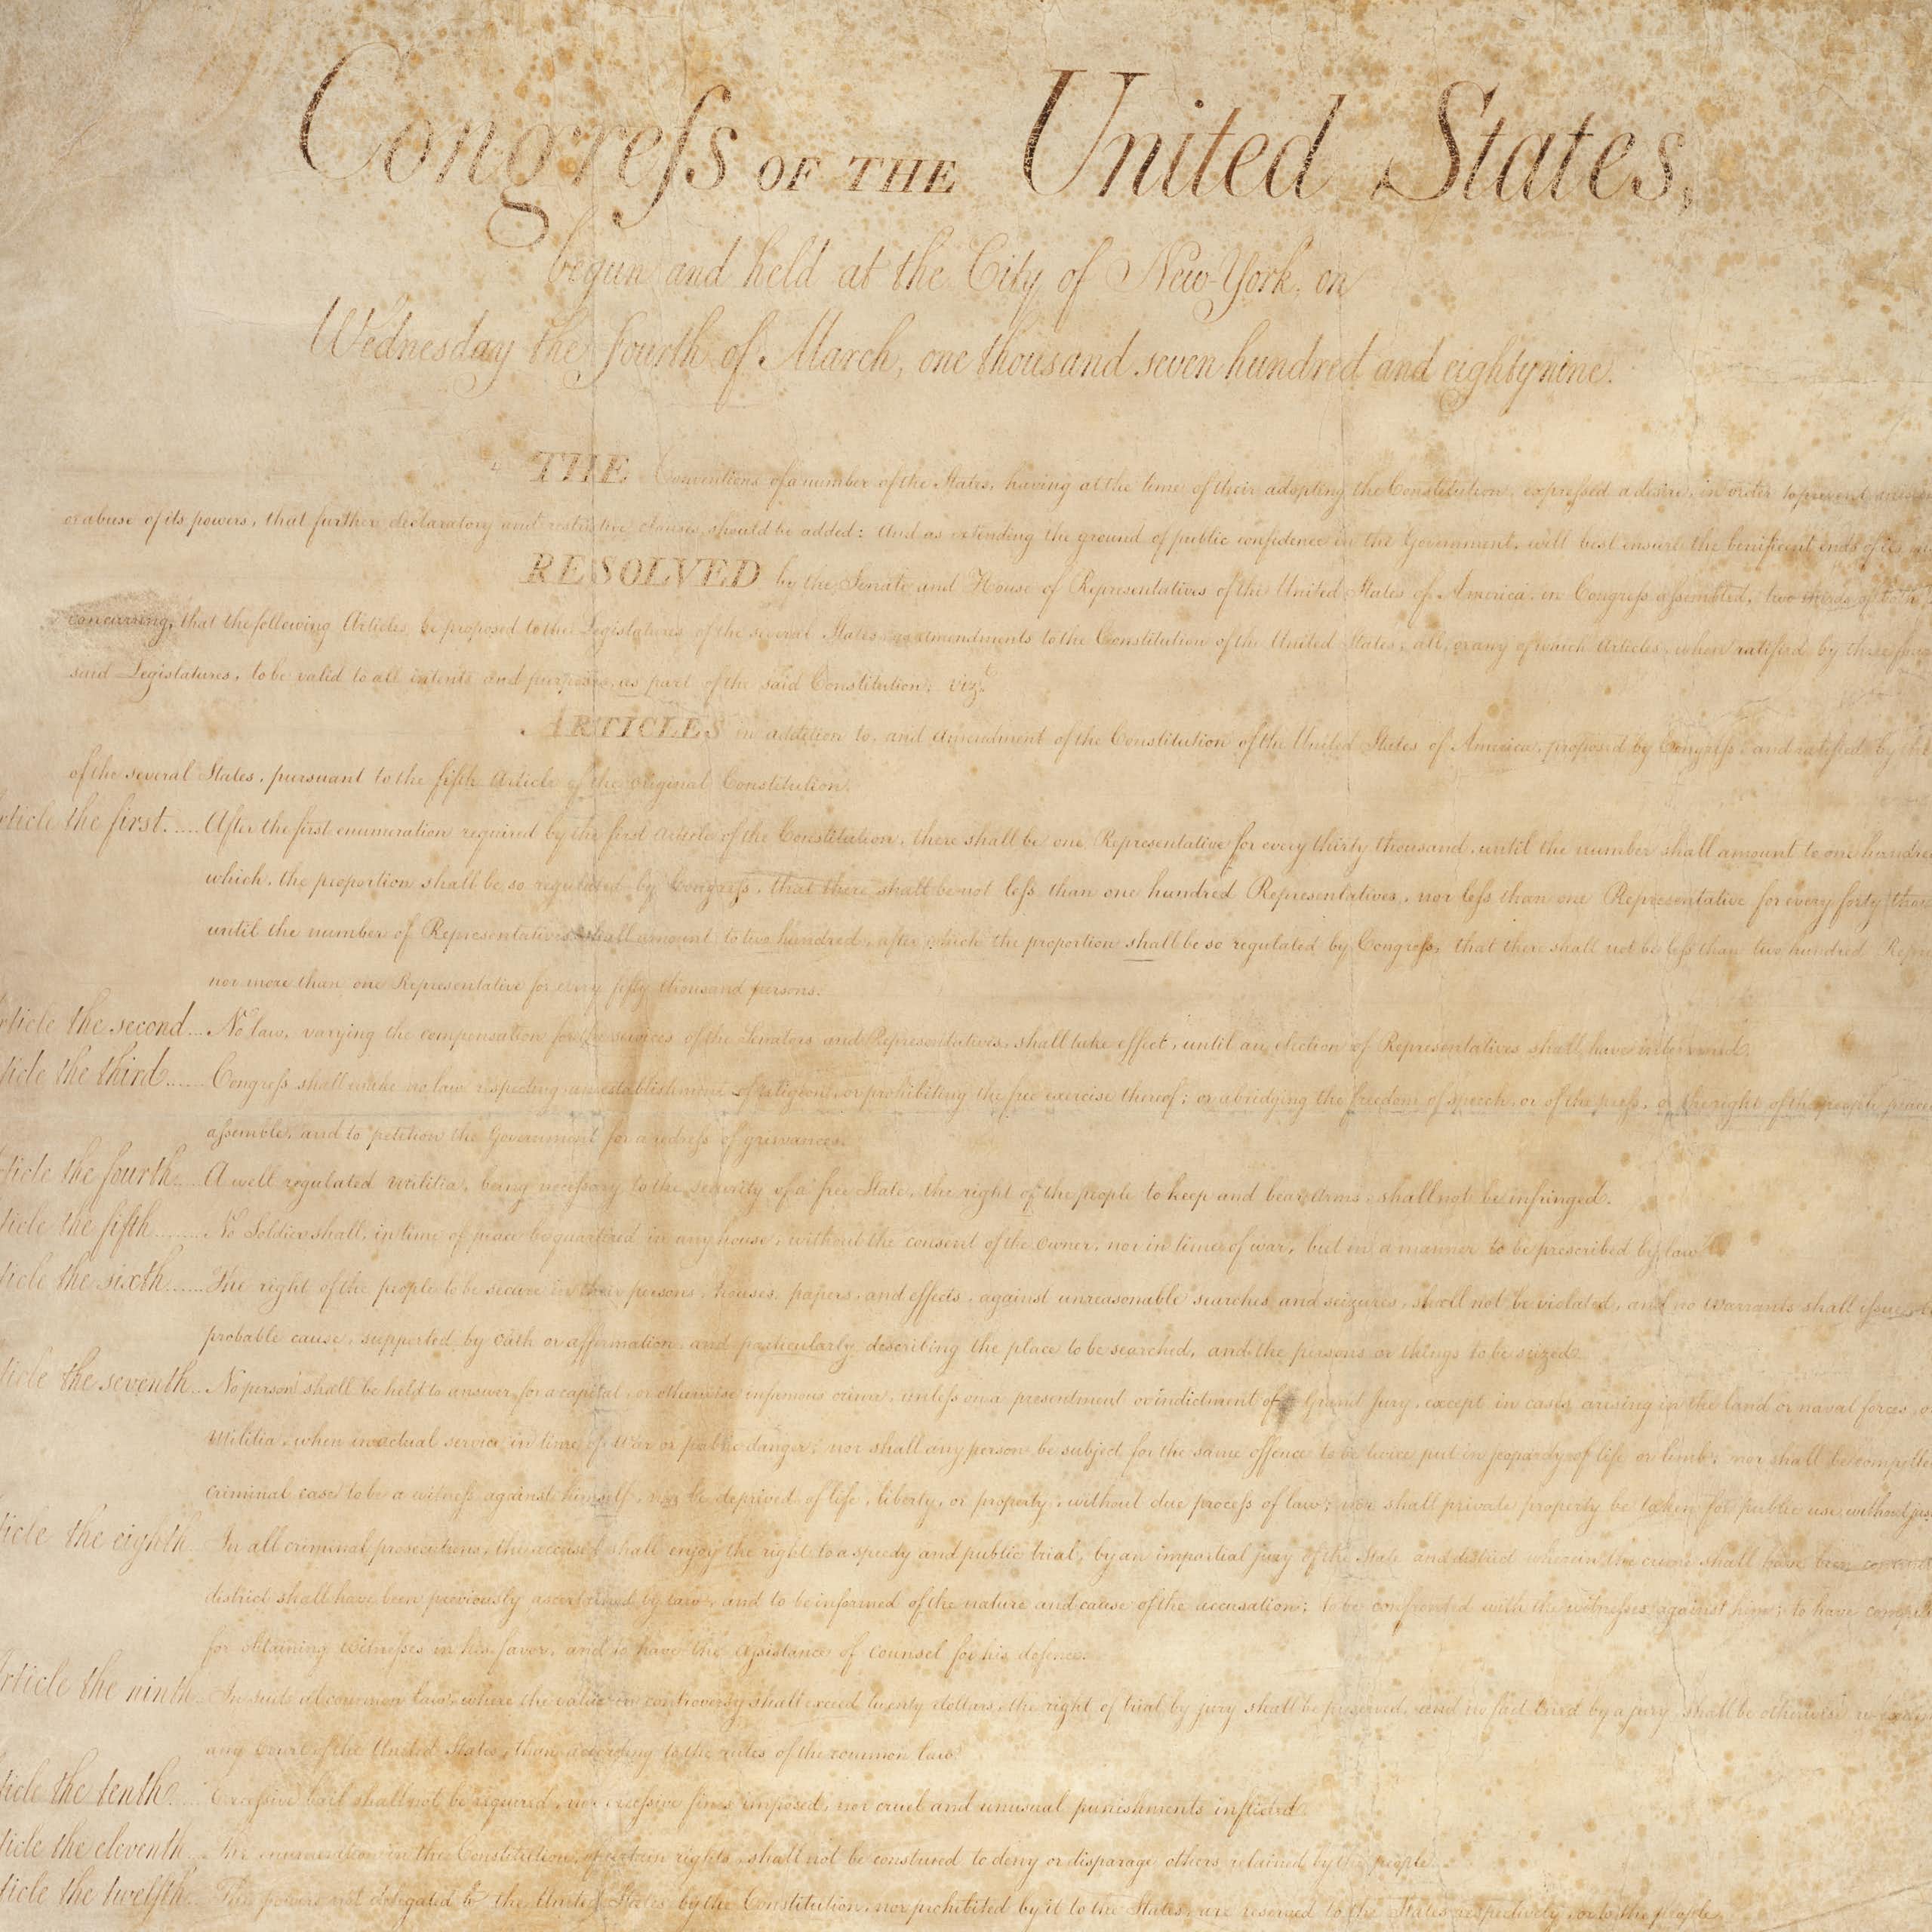 Congreſs OF THE United States,
begun and held at the City of New-York, on
Wednesday the fourth of March, one thousand seven hundred and eighty nine.
THE Conventions of a number of the States, having at the time of their adopting the Constitution, expreſsed a desire, in order to prevent
or abuse of its powers, that further declaratory and restrictive clauses should be added: And as extending the ground of public confidence in the Government, will best insure the benificent ends of its
RESOLVED by the Senate and House of Representatives of the United States of America, in Congreſs aſsembled, two thirds of both
concurring, that the following Articles be proposed to the Legislatures of the several States, as amendments to the Constitution of the United States, all, or any of which Articles, when ratified by three
said Legislatures, to be valid to all intents and purposes, as part of the said Constitution; viz.t
ARTICLES in addition to, and Amendment of the Constitution of the United States of America, proposed by Congreſs, and ratified by the
of the several States, pursuant to the fifth Article of the original Constitution.
rticle the first..... After the first enumeration required by the first Article of the Constitution, there shall be one Representative for every thirty thousand, until the number shall amount to one hundre
which, the proportion shall be so regulated by Congreſs, that there shall be not leſs than one hundred Representatives, nor leſs than one Representative for every forty thou
until the number of Representatives shall amount to two hundred, after which the proportion shall be so regulated by Congreſs, that there shall not be leſs than two hundred Repre
nor more than one Representative for every fifty thousand persons.
rticle the second... No law, varying the compensation for the services of the Senators and Representatives, shall take effect, until an election of Representatives shall have intervened.
ticle the third...... Congreſs shall make no law respecting an establishment of religion, or prohibiting the free exercise thereof; or abridging the freedom of speech, or of the preſs, or the right of the people peace
aſsemble, and to petition the Government for a redreſs of grievances.
rticle the fourth.... A well regulated Militia, being neceſsary to the security of a free State, the right of the people to keep and bear Arms, shall not be infringed.
ticle the fifth........ No Soldier shall, in time of peace be quartered in any house, without the consent of the Owner, nor in time of war, but in a manner to be prescribed by law.
ticle the sixth...... The right of the people to be secure in their persons, houses, papers, and effects, against unreasonable searches and seizures, shall not be violated, and no Warrants shall iſsue,
probable cause, supported by Oath or affirmation, and particularly describing the place to be searched, and the persons or things to be seized.
ticle the seventh... No person shall be held to answer for a capital, or otherwise infamous crime, unleſs on a presentment or indictment of a Grand Jury, except in cases arising in the land or naval forces,
Militia, when in actual service in time of War or public danger; nor shall any person be subject for the same offence to be twice put in jeopardy of life or limb; nor shall be compelle
criminal case to be a witneſs against himself, nor be deprived of life, liberty, or property, without due proceſs of law; nor shall private property be taken for public use without
ticle the eighth.. In all criminal prosecutions, the accused shall enjoy the right to a speedy and public trial, by an impartial jury of the State and district wherein the crime shall have been
district shall have been previously ascertained by law, and to be informed of the nature and cause of the accusation; to be confronted with the witneſses against him; to have
for obtaining witneſses in his favor, and to have the aſsistance of counsel for his defence.
rticle the ninth.. In suits at common law, where the value in controversy shall exceed twenty dollars, the right of trial by jury shall be preserved, and no fact tried by a jury, shall be otherwise
any Court of the United States, than according to the rules of the common law.
ticle the tenth... Exceſsive bail shall not be required, nor exceſsive fines imposed, nor cruel and unusual punishments inflicted.
ticle the eleventh... The enumeration in the Constitution, of certain rights, shall not be construed to deny or disparage others retained by the people.
ticle the twelfth... The powers not delegated to the United States by the Constitution, nor prohibited by it to the States, are reserved to the States respectively, or to the people.